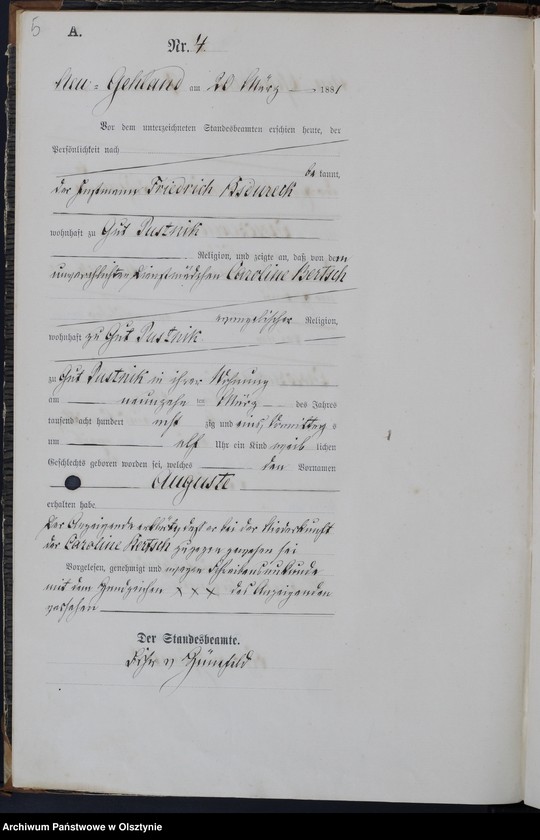 5
A.
Nr. 4
Neu-Gehland am 20 März 1881
Vor dem unterzeichneten Standesbeamten erschien heute, der
Persönlichkeit nach
be kannt,
der Instmann Friedrich Bsdureck
wohnhaft zu Gut Pustnik
Religion, und zeigte an, daß von dem
unverehelichten Dienstmädchen Caroline Bertsch
evangelischer Religion,
wohnhaft zu Gut Pustnik
zu Gut Pustnik in ihrer Wohnung
am neunzehn ten März des Jahres
tausend acht hundert acht zig und eins, Vormittags
um elf Uhr ein Kind weib lichen
Geschlechts geboren worden sei, welches den Vornamen
Auguste
erhalten habe.
Der Anzeigende erklärte, daß er bei der Niederkunft
der Caroline Bertsch zugegen gewesen sei
Vorgelesen, genehmigt und wegen Schreibensunkunde
mit dem Handzeichen x x x des Anzeigenden
versehen
Der Standesbeamte.
v
Archiwum Państwowe w Olsztynie